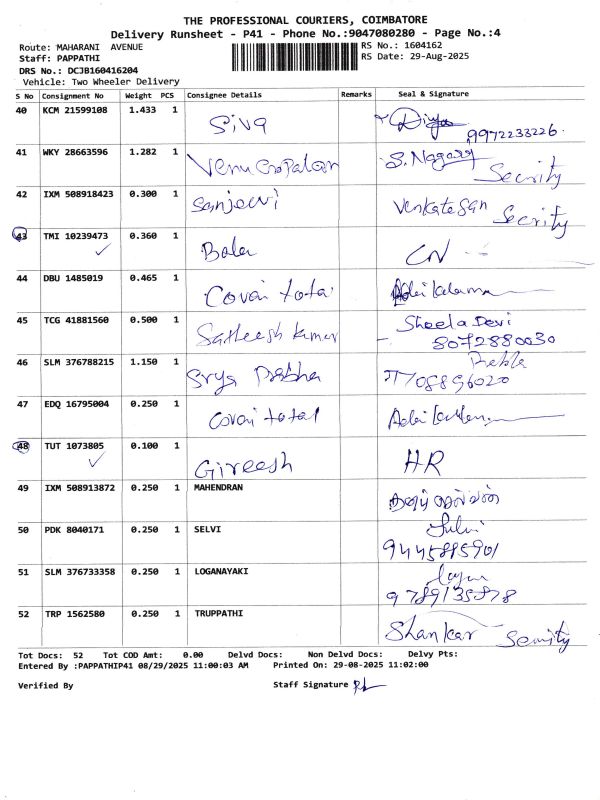 THE PROFESSIONAL COURIERS, COIMBATORE
Delivery Runsheet - P41 - Phone No.:9047080280 - Page No.:4
Route: MAHARANI AVENUE
RS No.: 1604162
Staff: PAPPATHI
RS Date: 29-Aug-2025
DRS No.: DCJB160416204
Vehicle: Two Wheeler Delivery
S No Consignment No Weight PCS Consignee Details Remarks Seal & Signature
40 KCM 21599108 1.433 1 Siva Divya
9972233226.
41 WKY 28663596 1.282 1 Venu Gopalan S. Nagaraj
Secrity
42 IXM 508918423 0.300 1 Sanjeevi Venkatesan Secrity
43 TMI 10239473 0.360 1 Bala CN
44 DBU 1485019 0.465 1 Covai total
45 TCG 41881560 0.500 1 Satheesh kumar Sheela Devi
8072880030
46 SLM 376788215 1.150 1 Srya Prabha
7708896020
47 EDQ 16795004 0.250 1 Covai total
48 TUT 1073805 0.100 1 Gireesh HR
49 IXM 508913872 0.250 1 MAHENDRAN
50 PDK 8040171 0.250 1 SELVI
9445885901
51 SLM 376733358 0.250 1 LOGANAYAKI
9789135878
52 TRP 1562580 0.250 1 TRUPPATHI Shankar Semity
Tot Docs: 52 Tot COD Amt: 0.00 Delvd Docs: Non Delvd Docs: Delvy Pts:
Entered By :PAPPATHIP41 08/29/2025 11:00:03 AM Printed On: 29-08-2025 11:02:00
Verified By Staff Signature